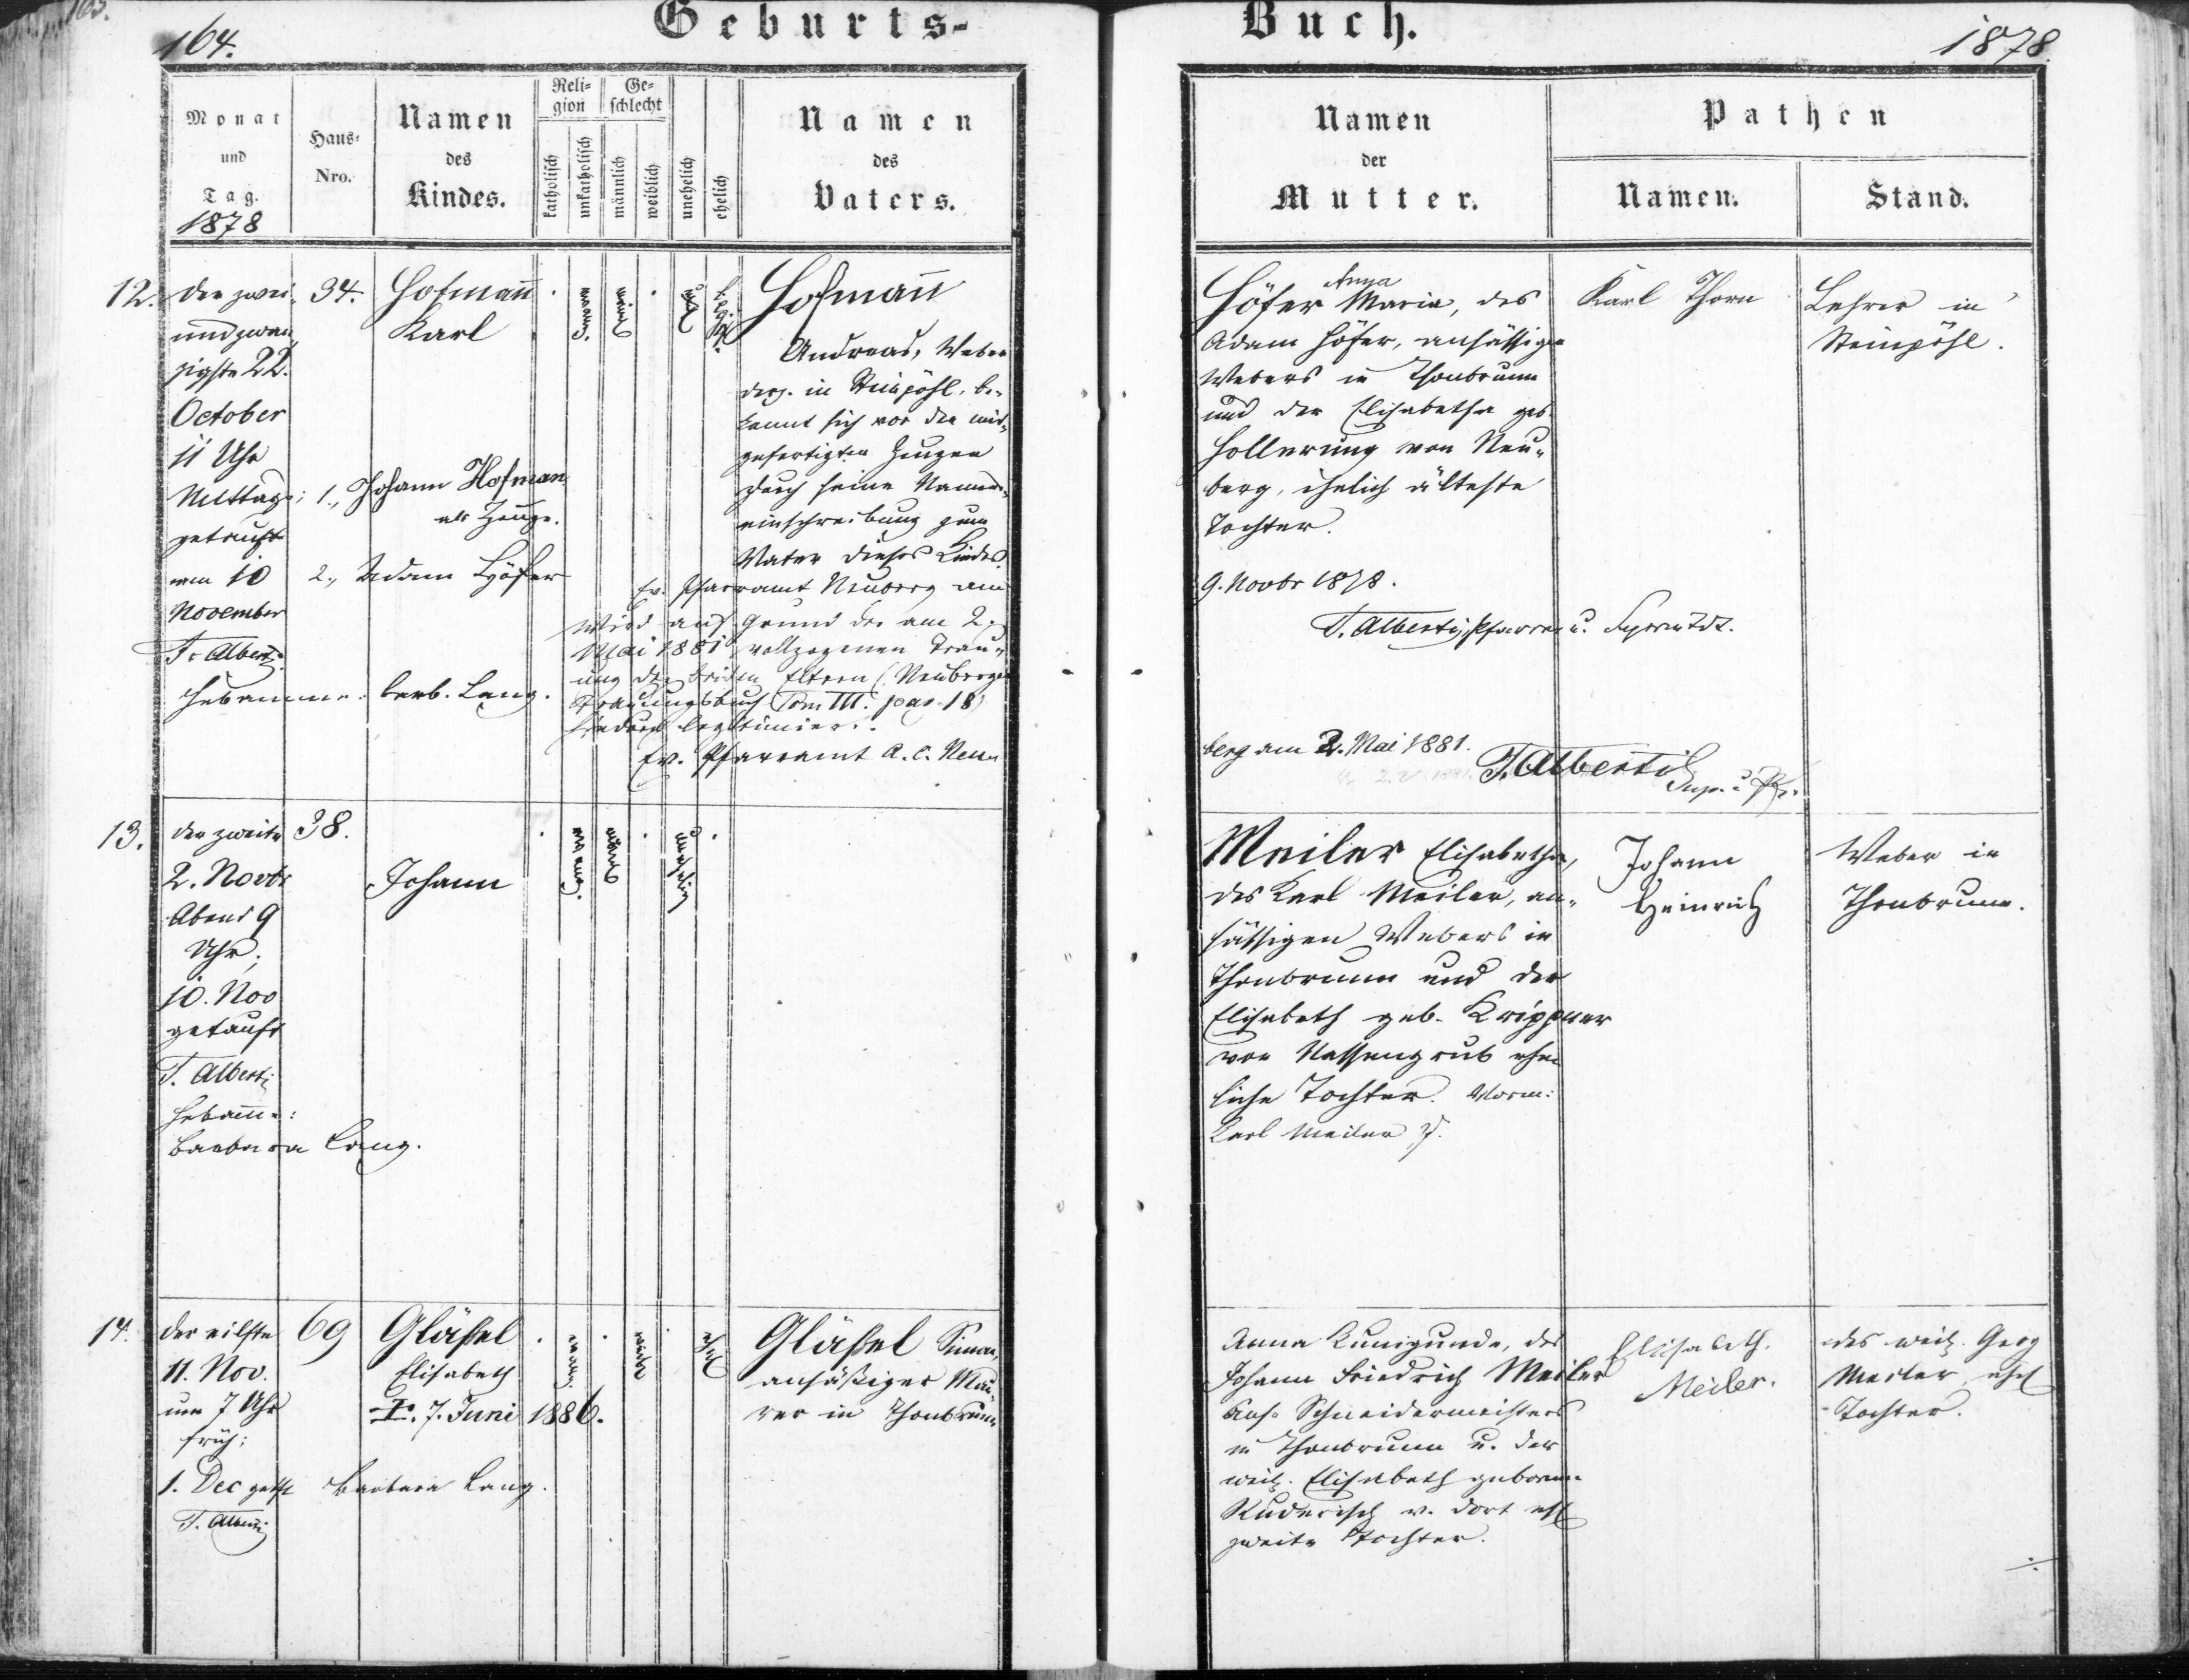 163.
164.
Geburts-
Monat
und
Tag.
1878
Haus-
Nro.
Namen
des
Kindes.
Reli-
gion
katholisch
unkatholisch
Ge-
schlecht
männlich
weiblich
unehelich
ehelich
Namen
des
Vaters.
12.
der zwei
und zwan
zigste 22.
October
11 Uhr
Mittags:
getauft
am 10
November
T. Alberti
Hebamme: Barb. Lang.
34.
Hofmañ
Karl
1., Johann Hofman
als Zeuge.
2., Adam Höfer
Hofmañ
Andreas, Weber
derz. in Steinpöhl, be-
kannt sich vor den mit-
gefertigten Zeugen
durch seine Namens-
einschreibung zum
Vater dieses Kindes.
Ev. Pfarramt Neuberg am
Wird auf Grund der am 2.
Mai 1881 vollzogenen Trau-
ung der beiden Eltern (Neuberger
Trauungsbuch Tom III. pag. 18)
hiedurch legitimiert.
Ev. Pfarramt A. C. Neu-
13.
der zweite
2. Novbr
Abend 9
Uhr;
10. Nov
getauft
T. Alberti
Hebam̃e:
Barbara Lang.
38.
Johann
unehelich
14.
der eilfte
11. Nov.
um 7 Uhr
früh;
1. Dec get.
T. Alberti
69
Gläßel
Elisabeth
†. 7. Juni 1886.
Barbara Lang.
Gläßel Simon,
ansäßiger Mau-
rer in Thonbrunn
Buch.
1878.
Namen
der
Mutter.
Pathen
Namen.
Stand.
Anna
Höfer Maria, des
Adam Höfer, ansässigen
Webers in Thonbrunn
und der Elisabetha geb.
Hollerung von Neu-
berg, ehelich älteste
Tochter.
9. Novbr 1878.
T. Alberti, Pfarrer u. Superintdt.
berg am 2. Mai 1881.
T. Alberti
Sup. u. Pfr.
Karl Thorn
Lehrer in
Steinpöhl.
Meiler Elisabetha,
des Karl Meiler, an-
sässigen Webers in
Thonbrunn und der
Elisabeth geb. Krippner
von Nassengrub ehe-
liche Tochter. Vorm:
Karl Meiler
Johann
Heinrich
Weber in
Thonbrunn.
Anna Kunigunde, des
Johann Friedrich Meiler
Ans. Schneidermeisters
in Thonbrunn u. der
weil. Elisabeth geborene
Künderisch v. dort ehl
zweite Tochter.
Elisabeth.
Meiler.
des weil. Georg
Meiler, ehl
Tochter.